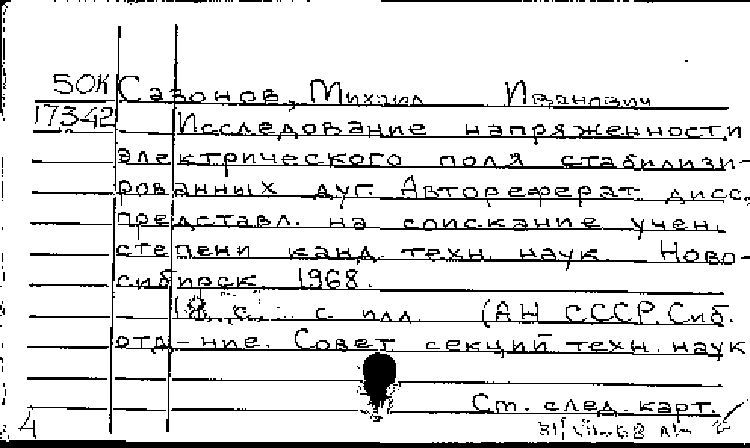 50К Сазонов, Михаил Иванович
17342 Исследование напряженности
электрического поля стабилизи-
рованных дуг. Автореферат дисс,
представл. на соискание учен.
степени канд. техн. наук. Ново-
сибирск, 1968.
18 с. с илл. (АН СССР. Сиб.
отд-ние. Совет секций техн. наук
См. след. карт.
4